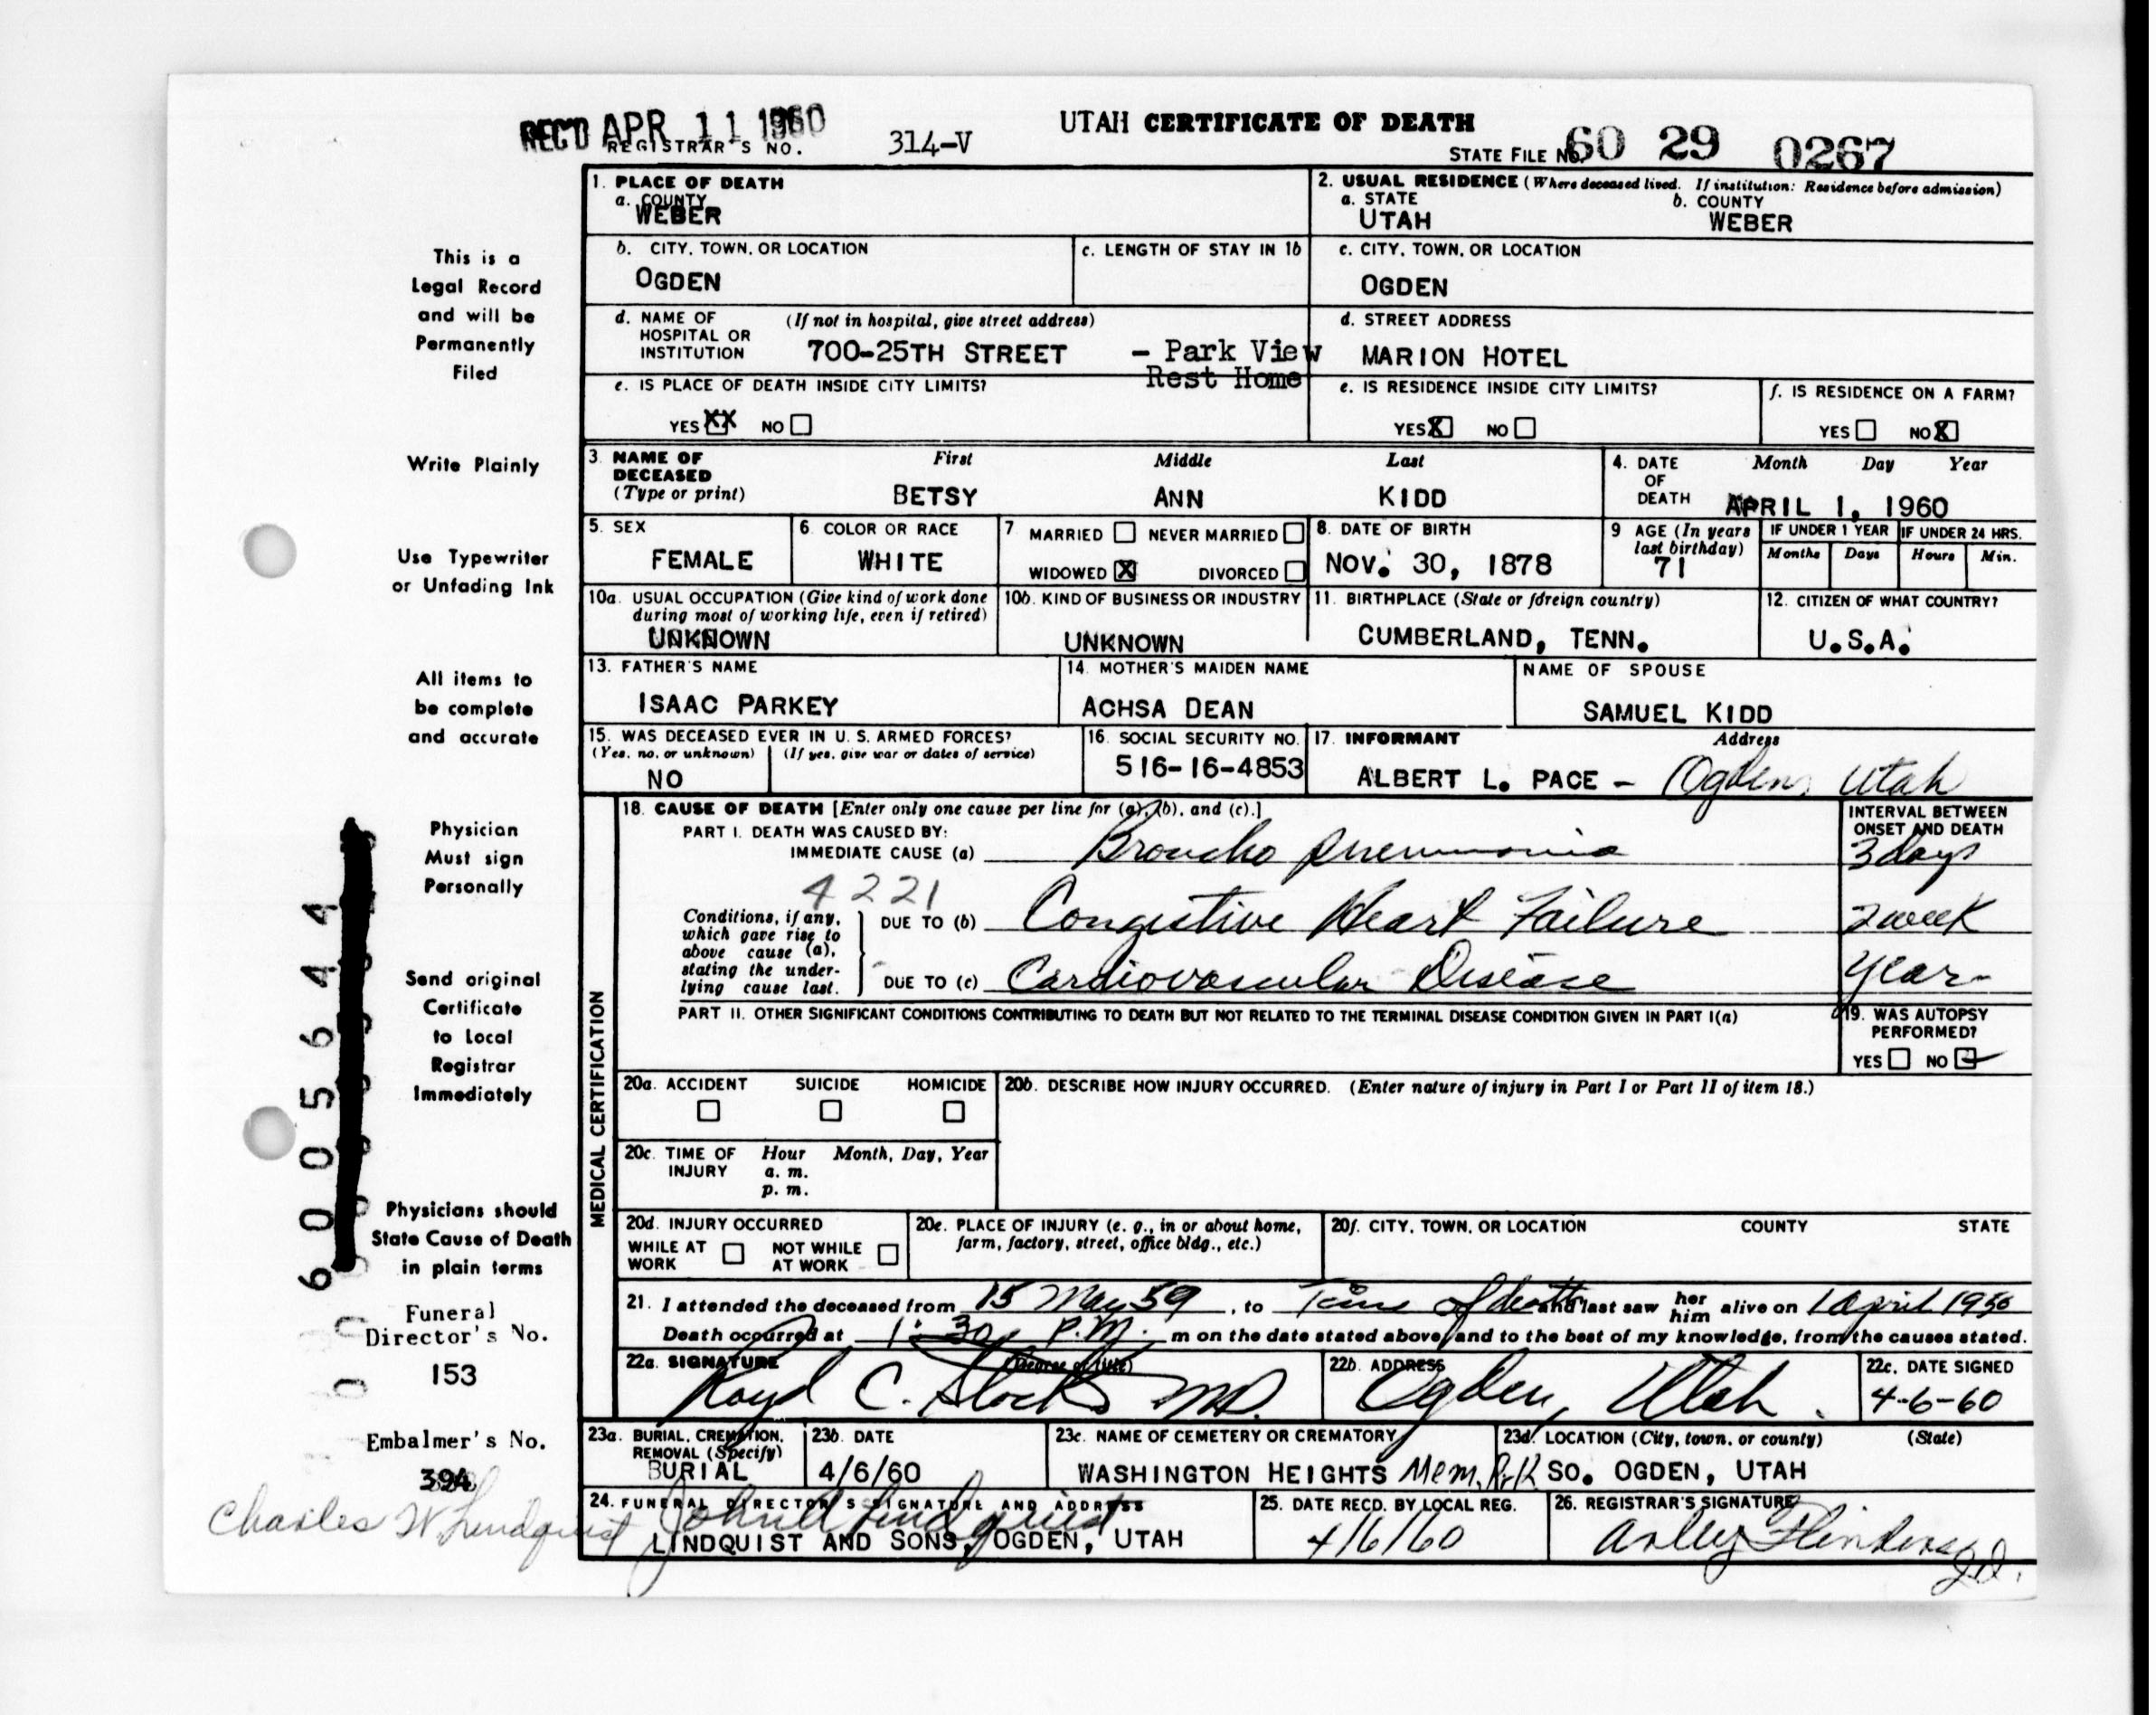 REC'D APR 11 1960
UTAH CERTIFICATE OF DEATH
REGISTRAR'S NO. 314-V
STATE FILE NO. 60 29 0267
1. PLACE OF DEATH
a. COUNTY
WEBER
2. USUAL RESIDENCE (Where deceased lived. If institution: Residence before admission)
a. STATE b. COUNTY
UTAH WEBER
b. CITY, TOWN, OR LOCATION
OGDEN
c. LENGTH OF STAY IN 1b
c. CITY, TOWN, OR LOCATION
OGDEN
d. NAME OF HOSPITAL OR INSTITUTION (If not in hospital, give street address)
700-25TH STREET - Park View
Rest Home
d. STREET ADDRESS
MARION HOTEL
e. IS PLACE OF DEATH INSIDE CITY LIMITS?
YES XX NO
e. IS RESIDENCE INSIDE CITY LIMITS?
YES X NO
f. IS RESIDENCE ON A FARM?
YES NO X
3. NAME OF DECEASED (Type or print)
First Middle Last
BETSY ANN KIDD
4. DATE OF DEATH Month Day Year
APRIL 1, 1960
5. SEX
FEMALE
6. COLOR OR RACE
WHITE
7 MARRIED NEVER MARRIED
WIDOWED X DIVORCED
8. DATE OF BIRTH
NOV. 30, 1878
9 AGE (In years last birthday)
71
IF UNDER 1 YEAR IF UNDER 24 HRS.
Months Days Hours Min.
10a. USUAL OCCUPATION (Give kind of work done during most of working life, even if retired)
UNKNOWN
10b. KIND OF BUSINESS OR INDUSTRY
UNKNOWN
11. BIRTHPLACE (State or foreign country)
CUMBERLAND, TENN.
12. CITIZEN OF WHAT COUNTRY?
U.S.A.
13. FATHER'S NAME
ISAAC PARKEY
14. MOTHER'S MAIDEN NAME
ACHSA DEAN
NAME OF SPOUSE
SAMUEL KIDD
15. WAS DECEASED EVER IN U. S. ARMED FORCES?
(Yes, no, or unknown) (If yes, give war or dates of service)
NO
16. SOCIAL SECURITY NO.
516-16-4853
17. INFORMANT Address
ALBERT L. PACE - Ogden, Utah
MEDICAL CERTIFICATION
18. CAUSE OF DEATH [Enter only one cause per line for (a), (b), and (c).]
INTERVAL BETWEEN ONSET AND DEATH
PART I. DEATH WAS CAUSED BY:
IMMEDIATE CAUSE (a) Broncho pneumonia 3 days
4221
Conditions, if any, which gave rise to above cause (a), stating the underlying cause last.
DUE TO (b) Congestive Heart Failure 2 week
DUE TO (c) Cardiovascular Disease Year-
PART II. OTHER SIGNIFICANT CONDITIONS CONTRIBUTING TO DEATH BUT NOT RELATED TO THE TERMINAL DISEASE CONDITION GIVEN IN PART I(a)
19. WAS AUTOPSY PERFORMED?
YES NO
20a. ACCIDENT SUICIDE HOMICIDE
20b. DESCRIBE HOW INJURY OCCURRED. (Enter nature of injury in Part I or Part II of item 18.)
20c. TIME OF INJURY Hour Month, Day, Year
a. m.
p. m.
20d. INJURY OCCURRED
WHILE AT WORK NOT WHILE AT WORK
20e. PLACE OF INJURY (e. g., in or about home, farm, factory, street, office bldg., etc.)
20f. CITY, TOWN, OR LOCATION COUNTY STATE
21. I attended the deceased from 15 May 59, to Time of death and last saw her him alive on 1 April 1950
Death occurred at 1:30 P.M. m on the date stated above, and to the best of my knowledge, from the causes stated.
22a. SIGNATURE (Degree or title)
C. Stocks MD.
22b. ADDRESS
Ogden, Utah.
22c. DATE SIGNED
4-6-60
23a. BURIAL, CREMATION, REMOVAL (Specify)
BURIAL
23b. DATE
4/6/60
23c. NAME OF CEMETERY OR CREMATORY
WASHINGTON HEIGHTS Mem. Park
23d. LOCATION (City, town, or county) (State)
SO. OGDEN, UTAH
24. FUNERAL DIRECTOR'S SIGNATURE AND ADDRESS
Lindquist
LINDQUIST AND SONS, OGDEN, UTAH
25. DATE RECD. BY LOCAL REG.
4/6/60
26. REGISTRAR'S SIGNATURE
Flinders
This is a
Legal Record
and will be
Permanently
Filed
Write Plainly
Use Typewriter
or Unfading Ink
All items to
be complete
and accurate
Physician
Must sign
Personally
Send original
Certificate
to Local
Registrar
Immediately
Physicians should
State Cause of Death
in plain terms
Funeral
Director's No.
153
Embalmer's No.
Charles W Lindquist
6005644